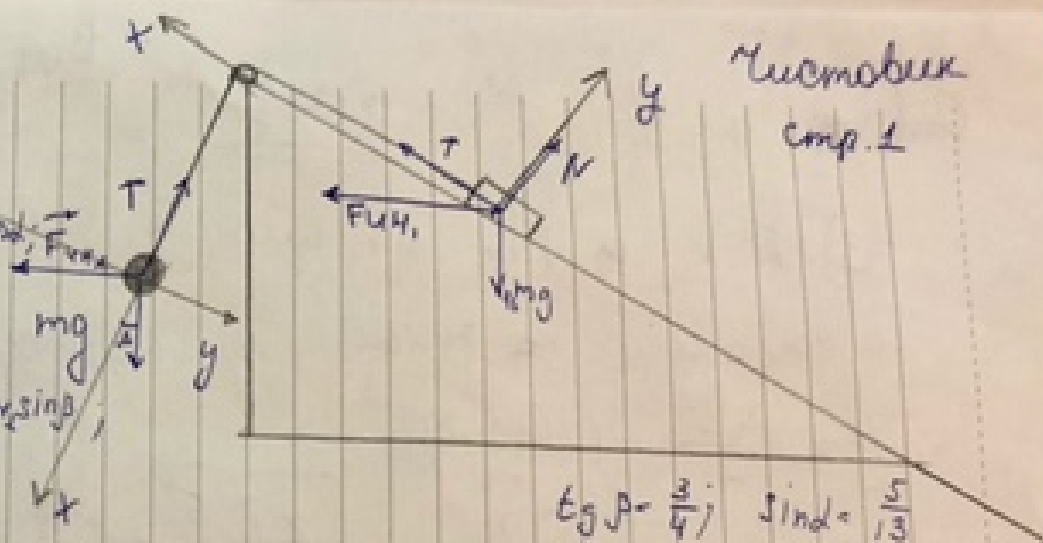 Чистовик
стр. 1
x
y
T
N
T
Fин₁
mg
mg
y
sinβ,
x
tg β = 3/4; sinα = 5/13